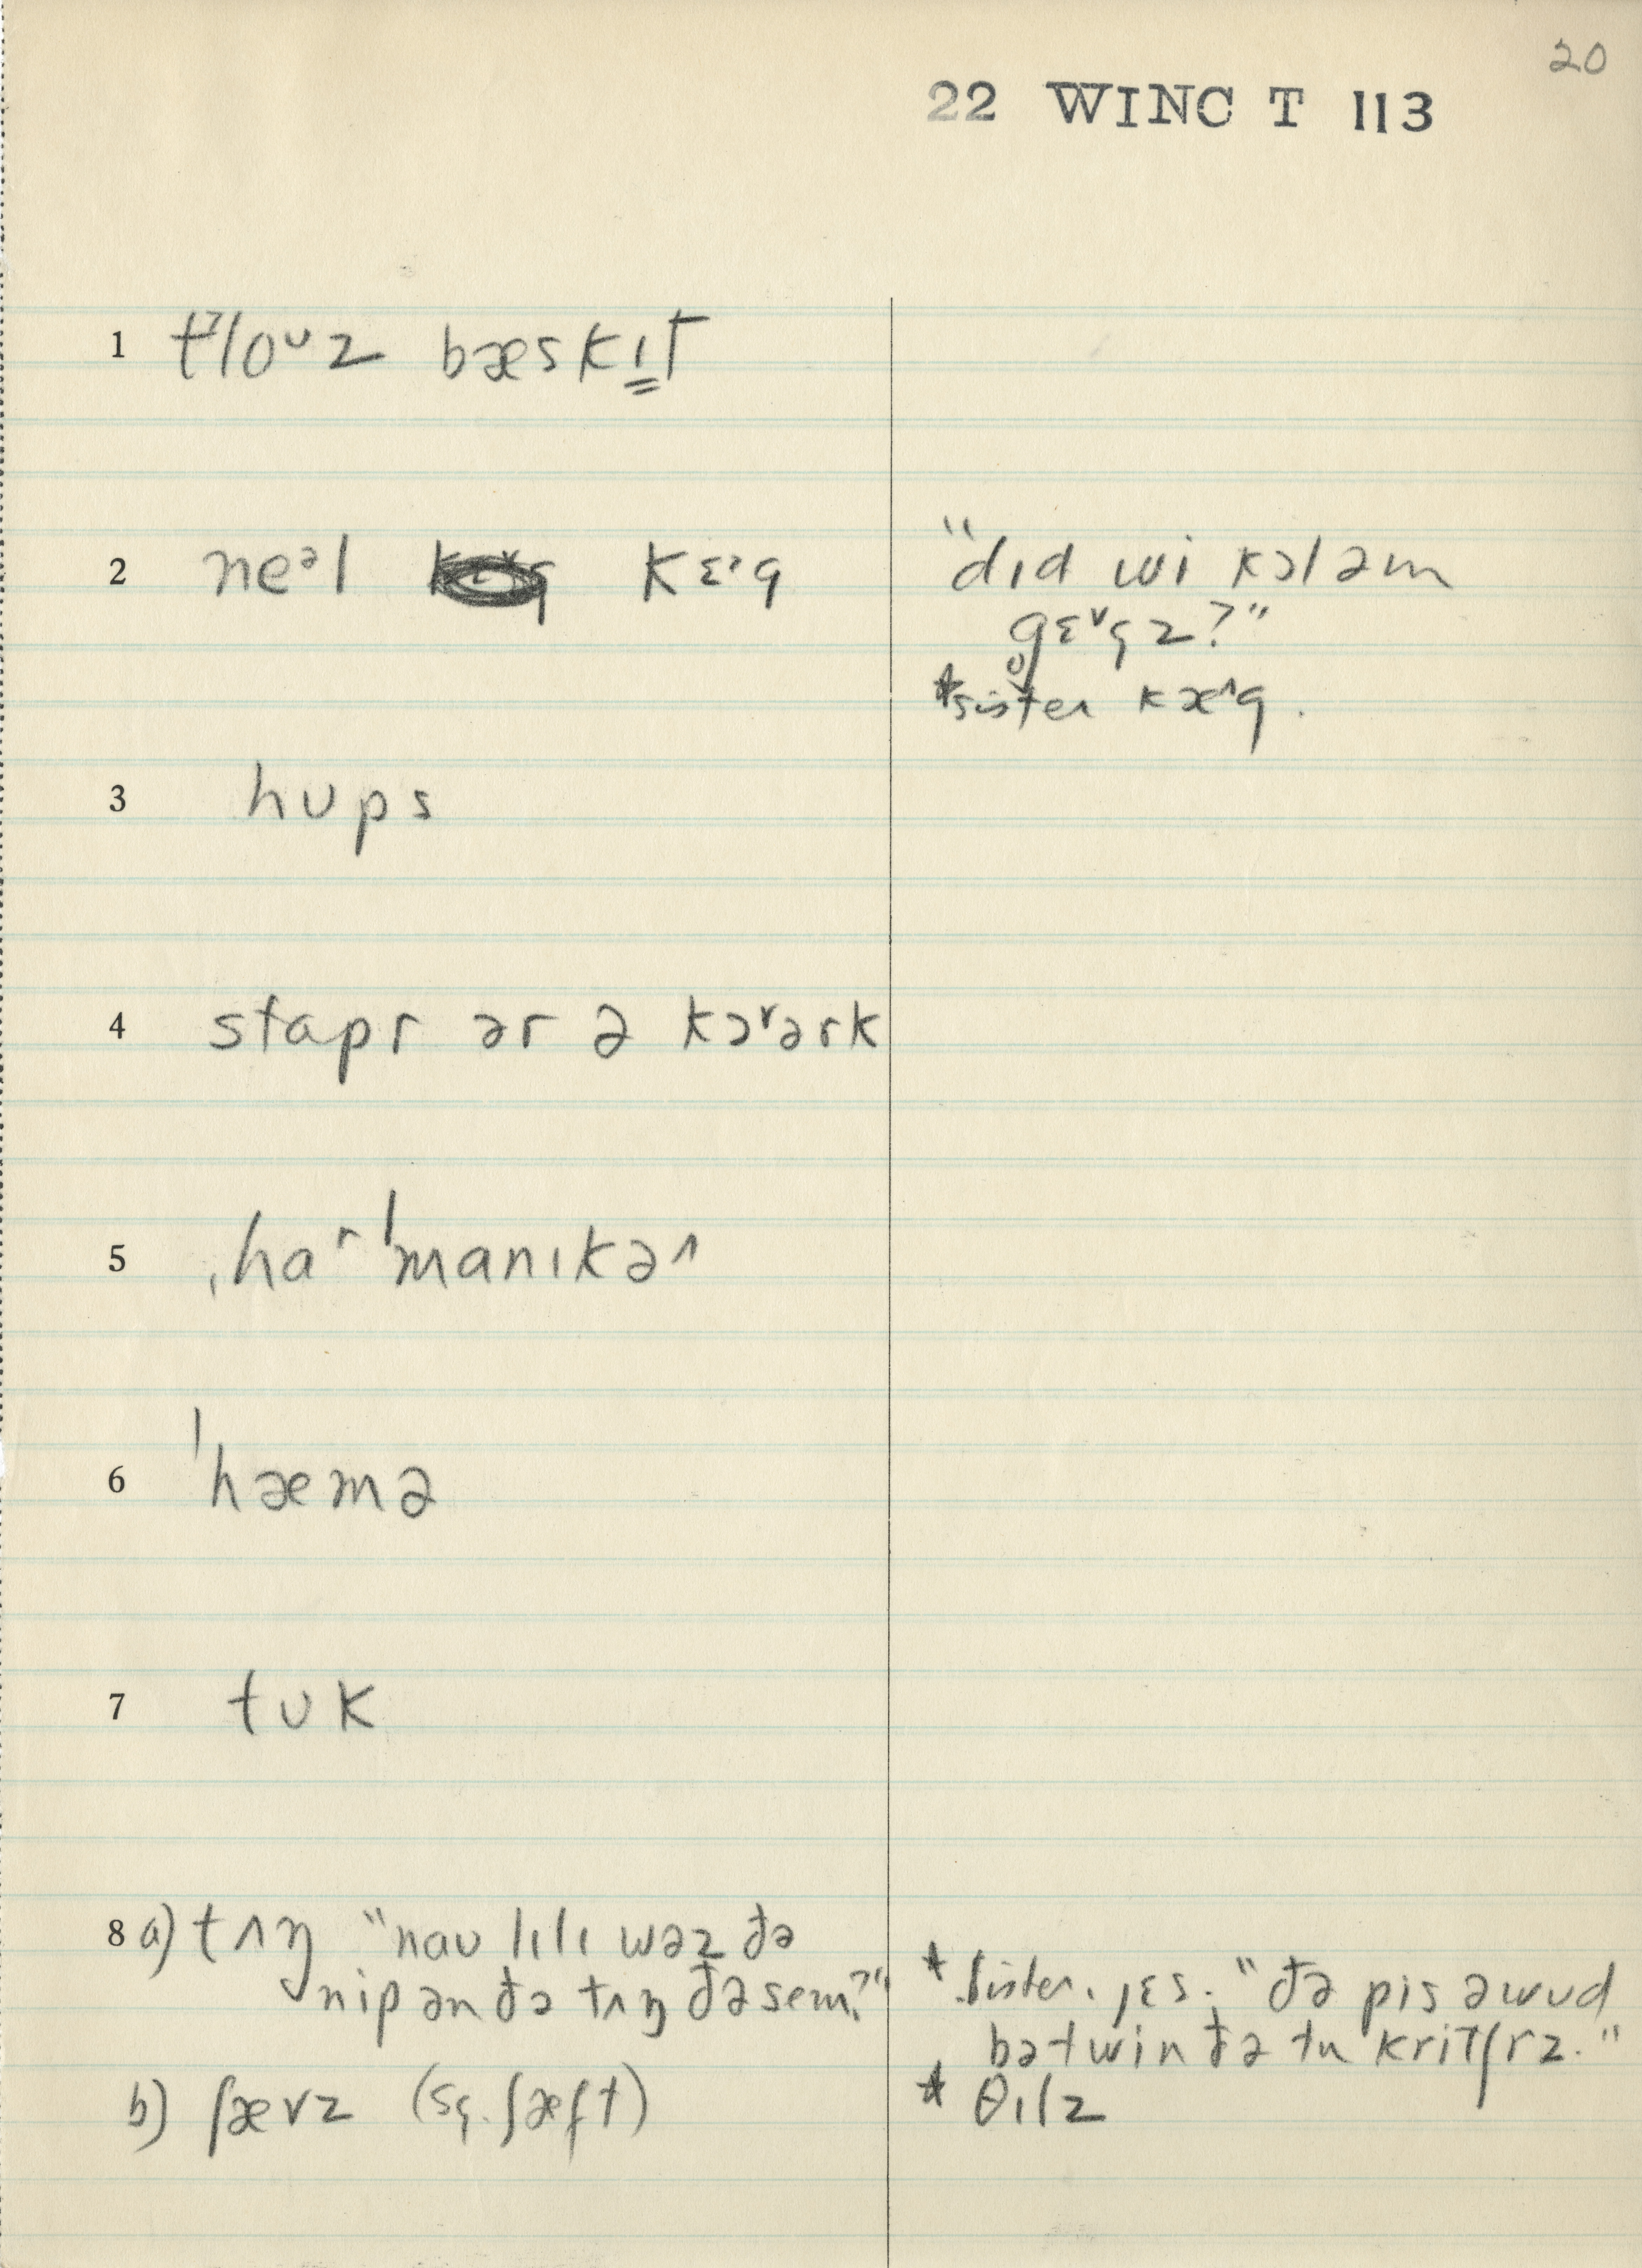 20
22 WINC T 113
1 tˀloᶷz bæskɪt
2 neᵊl kɛ˒g
"dɪd wi kɔləm
gɛ˅gz?"
*sister kæ˄g.
3 hᴜps
4 stapr ər ə kɔ˅ərk
5 ˌhaʳˈmanɪkə˄
6 ˈhæmə
7 tᴜk
8 a) tʌŋ "naᴜ lɪlɪ wəz ðə
nip ən ðə tʌŋ ðə sem?"
*sister. jɛs. "ðə pis ə wᴜd
bətwin ðə tu kritʃrz."
b) ʃævz (sg. ʃæft)
* θɪlz